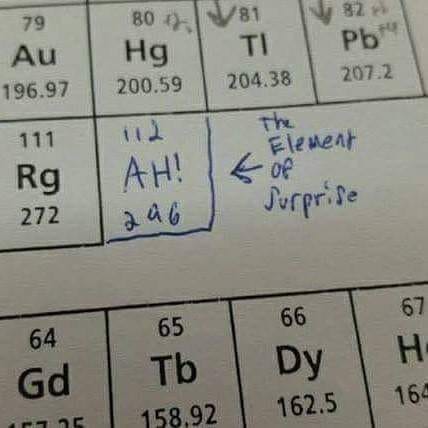 79
Au
196.97
80
Hg
200.59
81
Tl
204.38
82
Pb
207.2
111
Rg
272
112
AH!
296
The
Element
OF
Surprise
64
Gd
157.25
65
Tb
158.92
66
Dy
162.5
67